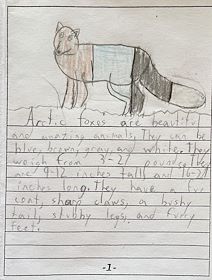 Arctic foxes are beautiful
and amazing animals. They can be
blue, brown, gray, and white. They
weigh from 3-21 pounds. They
are 9-12 inches tall and 16-27
inches long. They have a fur
coat, sharp claws, a bushy
tail, stubby legs, and furry
feet.
-1-